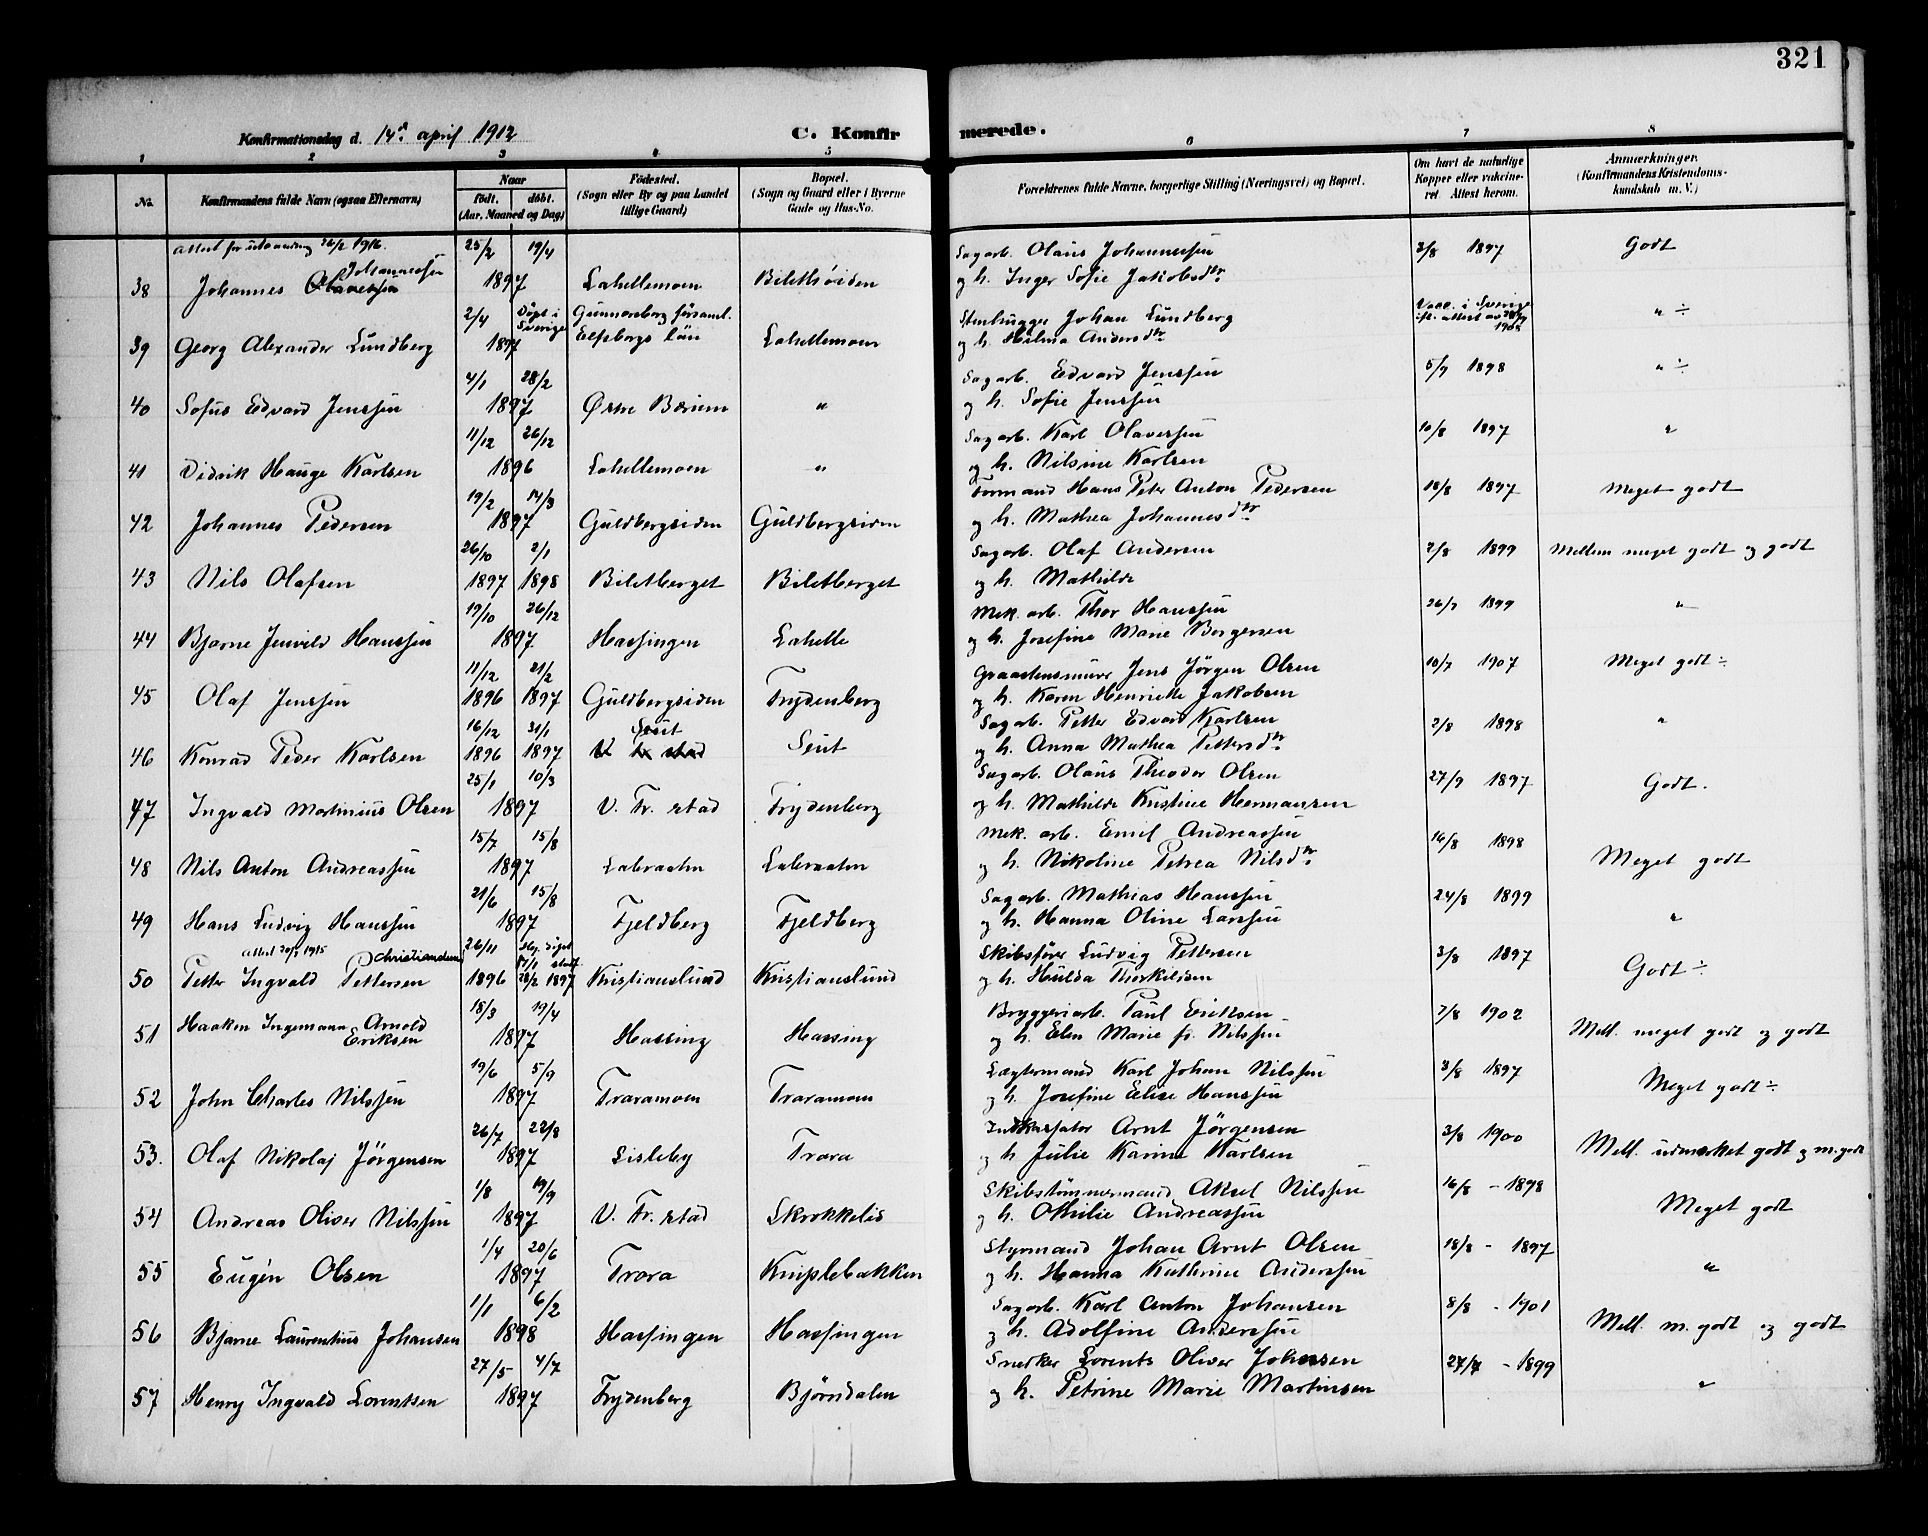 321
Konfirmationsdag d. 14de april 1912 C. Konfirmerede.
1 2 3 4 5 6 7 8
No. Konfirmandens fulde Navn (ogsaa Efternavn) Naar födt. döbt. (Aar, Maaned og Dag) Födested. (Sogn eller By og paa Landet tillige Gaard) Bopæl. (Sogn og Gaard eller i Byerne Gade og Hus-No. Forældrenes fulde Navne, borgerlige Stilling (Næringsvei) og Bopæl. Om havt de naturlige Kopper eller vakcineret. Attest herom. Anmærkninger. (Konfirmandens Kristendomskundskab m. V.)
attest for utvandring 22/2 1916. 25/2 19/4 Sagarb. Olaus Johannessen 3/8 1897 Godt
38 Johannes Olavessen Johannessen 1897 Lahellemoen Bilethöiden og h. Inger Sofie Jakobsdtr.
2/4 Döpt i Sverige Gunnarsborg församl. Stenhugger Johan Lundberg Vacc. i Sverige " ÷
39 Georg Alexander Lundberg 1897 Elfsborgs län Lahellemoen og h. Hilma Andersdtr
4/1 28/2 Sagarb. Edvard Jenssen 5/9 1898 " ÷
40 Sofus Edvard Jenssen 1897 Østre Bærum " og h. Sofie Jenssen
11/12 26/12 Sagarb. Karl Olavessen 10/8 1897 "
41 Didrik Hauge Karlsen 1896 Lahellemoen " og h. Nilsine Karlsen
19/2 14/3 Formand Hans Peter Anton Pedersen 18/8 1897 Meget godt
42 Johannes Pedersen 1897 Guldbergsiden Guldbergsiden og h. Mathea Johannesdtr
26/10 2/1 Sagarb. Olaf Andersen 2/8 1899 Mellem meget godt og godt
43 Nils Olafsen 1897 1898 Biletberget Biletberget og h. Mathilde
19/10 26/12 Mek. arb. Thor Hanssen 26/7 1899 "
44 Bjarne Jenvild Hanssen 1897 Hassingen Lahelle og h. Josefine Marie Borgersen
11/12 21/2 Graastensmurer Jens Jörgen Olsen 10/7 1907 Meget godt ÷
45 Olaf Jenssen 1896 1897 Guldbergsiden Frydenberg og h. Karen Henriette Jakobsen
16/12 31/1 Seut Sagarb. Petter Edvard Karlsen 2/8 1898 "
46 Konrad Peder Karlsen 1896 1897 V. Fr. stad Seut og h. Anna Mathea Pettersdtr.
25/1 10/3 Sagarb. Olaus Theodor Olsen 27/9 1897 Godt.
47 Ingvald Martinius Olsen 1897 V. Fr. stad Frydenberg og h. Mathilde Kristine Hermansen
15/7 15/8 Mek. arb. Emil Andreassen 16/8 1898 Meget godt
48 Nils Anton Andreassen 1897 Labraaten Labraaten og h. Nikoline Petrea Nilsdtr.
21/6 15/8 Sagarb. Mathias Hanssen 24/8 1899 "
49 Hans Ludvig Hanssen 1897 Fjeldberg Fjeldberg og h. Hanna Oline Larssen
Christiansen 26/11 Skibsförer Ludvig Pettersen 3/8 1897 Godt ÷
50 Petter Ingvald Pettersen 1896 28/2 1897 Kristianslund Kristianslund og h. Hulda Therkildsen
18/3 19/4 Bryggeriarb. Paul Eriksen 7/8 1902 Mell. meget godt og godt
51 Haakon Ingemann Arnold Eriksen 1897 Hassing Hassing og h. Elen Marie f. Nilssen
19/6 5/9 Lægtermand Karl Johan Nilssen 3/8 1897 Meget godt ÷
52 John Charles Nilssen 1897 Traramoen Traramoen og h. Josefine Elise Hanssen
26/7 22/8 Indkassator Arnt Jörgensen 3/8 1900 Mell. udmærket godt og m. godt
53. Olaf Nikolaj Jörgensen 1897 Lisleby Trara og h. Julie Karine Karlsen
1/8 19/9 Skibstömmermand Aksel Nilssen 16/8 - 1898 Meget godt
54 Andreas Oliver Nilssen 1897 V. Fr. stad Skrokkelis og h. Othilie Andreassen
1/4 20/6 Styrmand Johan Arnt Olsen 18/8 - 1897 "
55 Eugén Olsen 1897 Trara Kniplebakken og h. Hanna Kathrine Anderssen
1/1 6/2 Sagarb. Karl Anton Johansen 8/8 - 1901 Mell. m. godt og godt
56 Bjarne Laurentius Johansen 1898 Hassingen Hassingen og h. Adolfine Anderssen
27/5 4/7 Snedker Lorents Oliver Johnsen 27/7 - 1899 "
57 Henry Ingvald Lorentsen 1897 Frydenberg Bjørndalen og h. Petrine Marie Martinsen